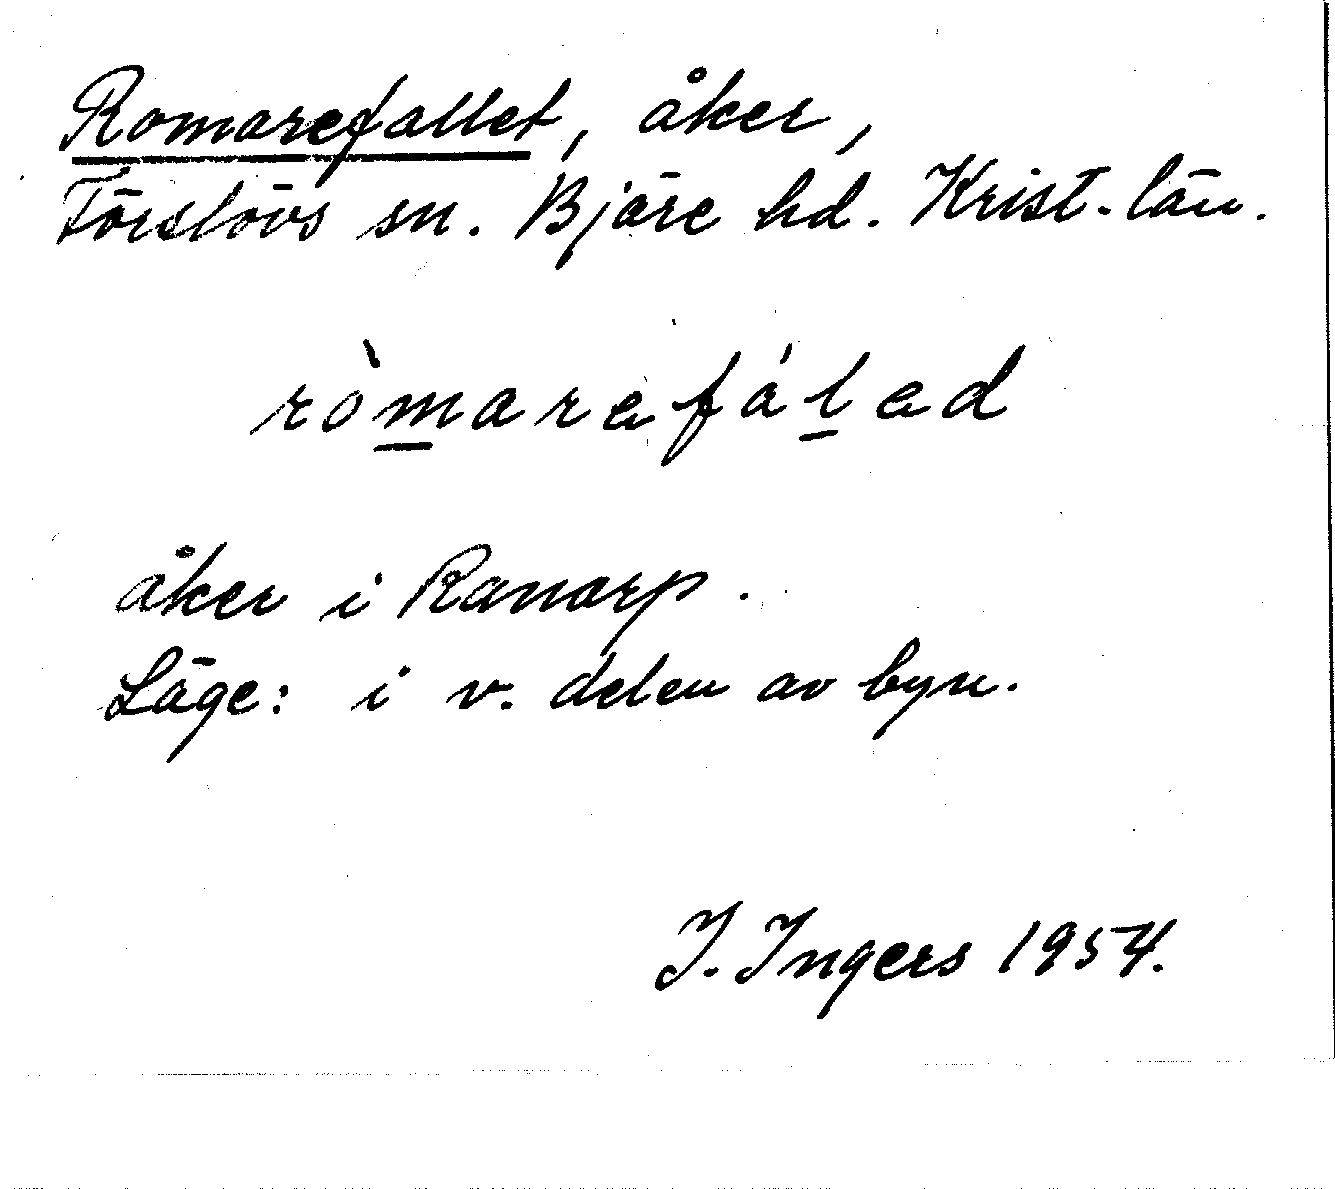 Romarefallet, åker,
Förslövs sn. Bjäre hd. Krist. län.
ròmarefálad
åker i Ranarp.
Läge: i v. delen av byn.
I. Ingers 1954.